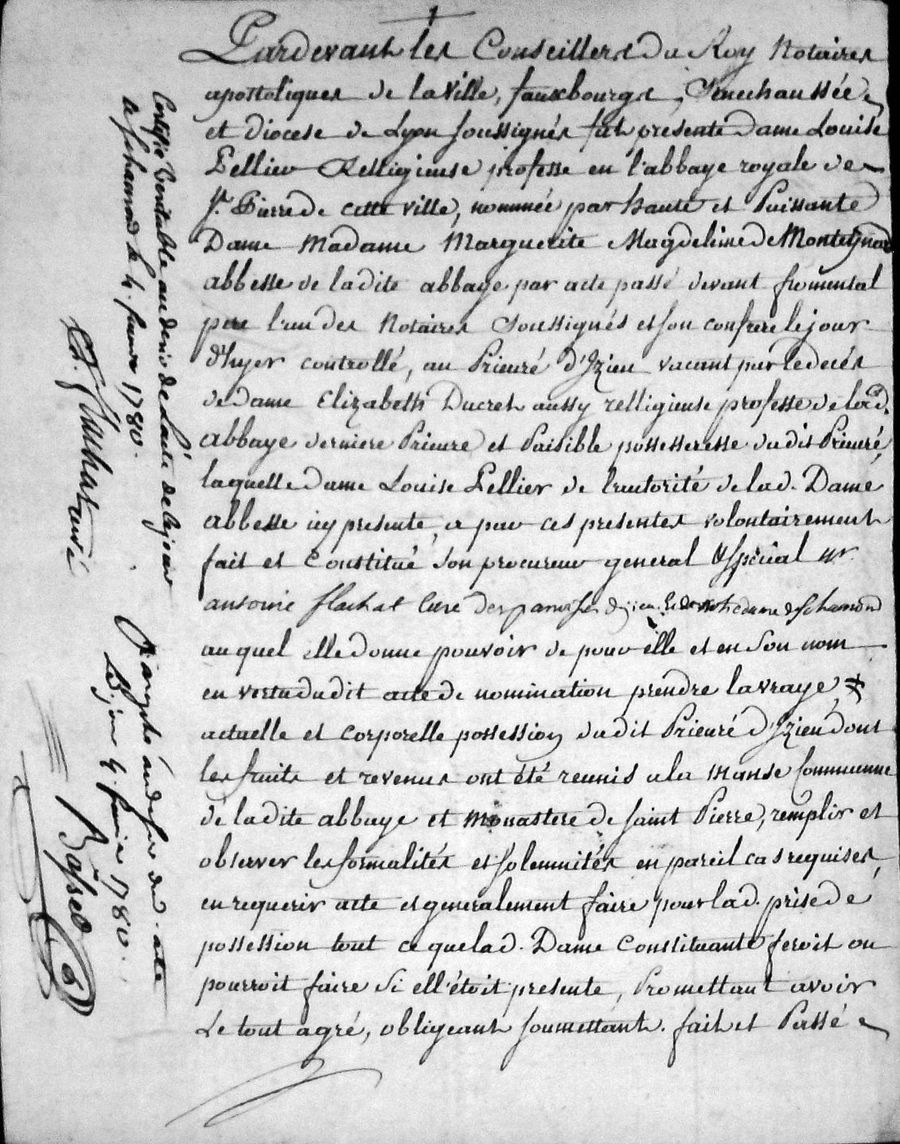 Pardevant les Conseillers du Roy Notaires
apostoliques de la ville, fauxbourgs, Senechaussée
et diocese de Lyon soussignés fut presente Dame Louise
Lellier Relligieuse professe en l'abbaye royale de
St. Pierre de cette ville, nommée par haute et Puissante
Dame Madame Marguerite Magdeleine de Monteynard
abbesse de la dite abbaye par acte passé devant fromental
pere l'un des Notaires Soussignés et son confrere le jour
d'hyer controllé, au Prieuré d'Izieu vacant par le decés
de dame Elizabeth Ducret aussy relligieuse professe de lad.
abbaye derniere Prieure et Paisible possesseresse dudit Prieuré,
laquelle dame Louise Lellier de l'autorité de lad. Dame
abbesse icy presente, a par ces presentes volontairement
fait et Constitué Son procureur general & special Mr
antoine flachat curé des paroisses d'izieu et de notre dame de st chamond
auquel elle donne pouvoir de pour elle et en Son nom
en vertu dudit acte de nomination prendre la vraye,
actuelle et corporelle possession dudit Prieuré d'Izieu, dont
les fruits et revenus ont été reunis a la manse Commune
de la dite abbaye et monastere de saint Pierre, remplir et
observer les formalités et solemnités en pareil cas requises
en requerir acte et generalement faire pour lad. prise de
possession tout ce que lad. Dame Constituante feroit ou
pourroit faire Si ell'étoit presente, Promettant avoir
Le tout agré, obligeant soumettant. fait et Passé
Certifié veritable au desir de l'acte de ce jour
a st chamond le 4. fevrier 1780.
Paraphé au desir de l'acte
de ce jour 4 fevrier 1780.